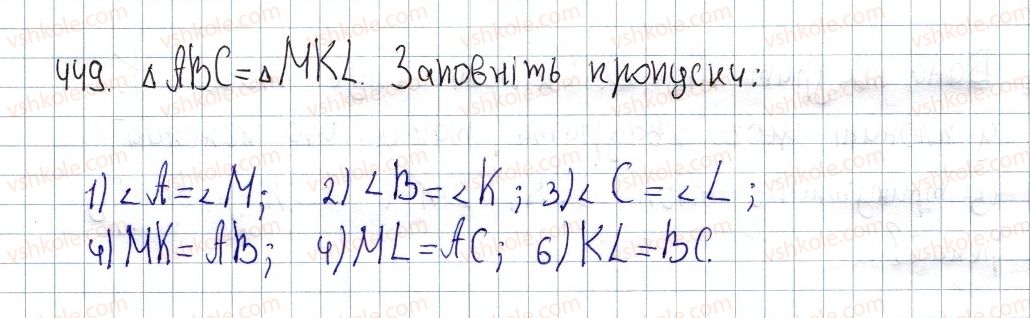 449. △ABC = △MKL. Заповніть пропуски:
1) ∠A = ∠M; 2) ∠B = ∠K; 3) ∠C = ∠L;
4) MK = AB; 4) ML = AC; 6) KL = BC.